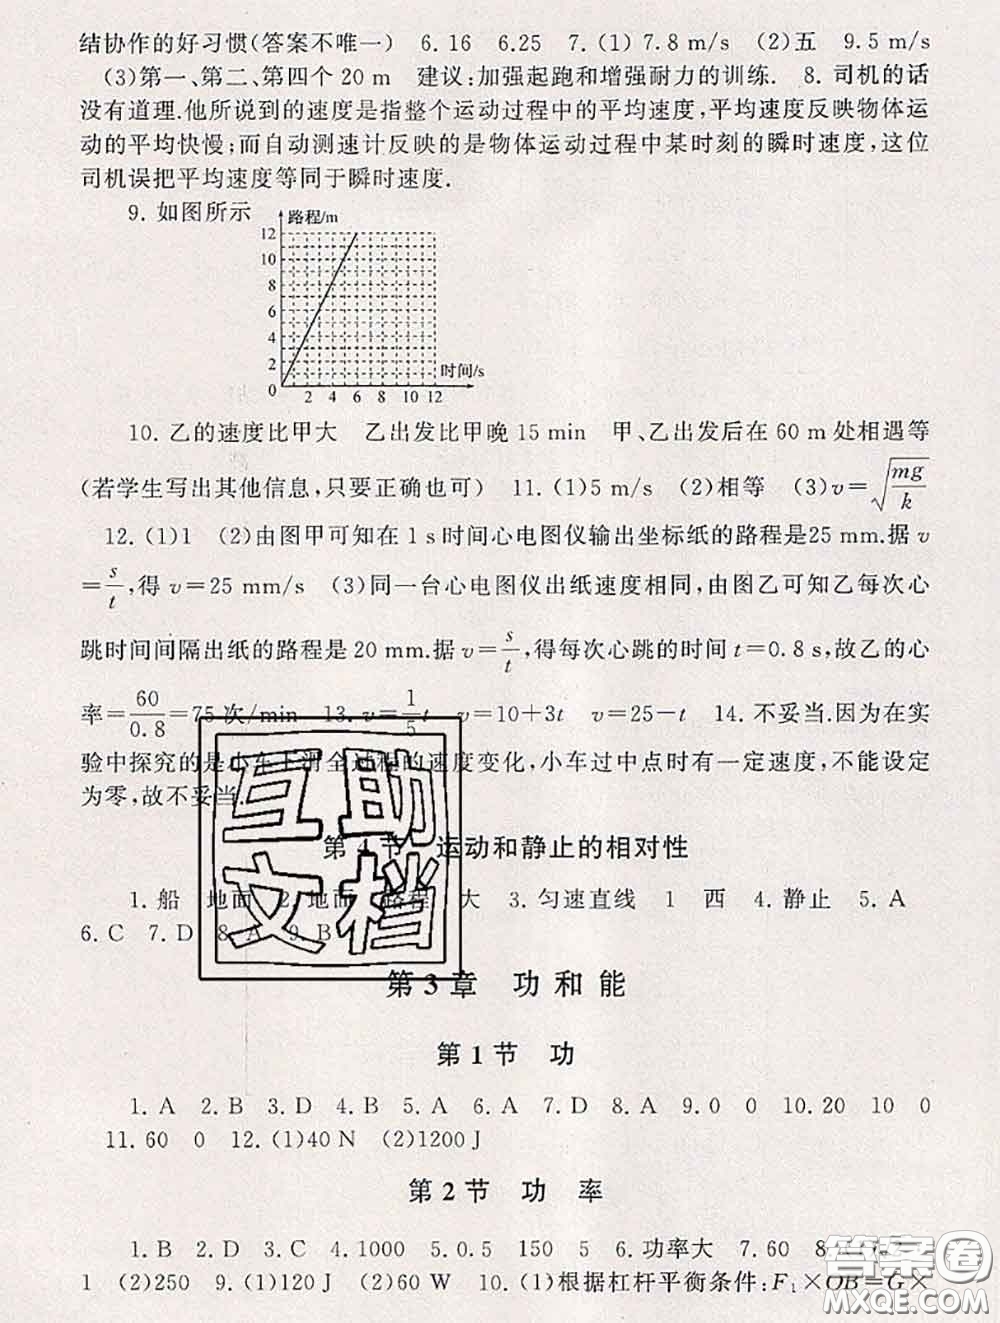 结协作的好习惯(答案不唯一) 6.16 6.25 7.(1)7.8 m/s (2)五 9.5 m/s
(3)第一、第二、第四个20 m 建议:加强起跑和增强耐力的训练. 8. 司机的话
没有道理.他所说到的速度是指整个运动过程中的平均速度,平均速度反映物体运
动的平均快慢;而自动测速计反映的是物体运动过程中某时刻的瞬时速度,这位
司机误把平均速度等同于瞬时速度.
9. 如图所示
路程/m
12
10
8
6
4
2
0
2 4 6 8 10 12
时间/s
10. 乙的速度比甲大 乙出发比甲晚15 min 甲、乙出发后在60 m处相遇等
(若学生写出其他信息,只要正确也可) 11.(1)5 m/s (2)相等 (3)v=√(mg/k)
12.(1)1 (2)由图甲可知在1 s时间心电图仪输出坐标纸的路程是25 mm.据v
=s/t,得v=25 mm/s (3)同一台心电图仪出纸速度相同,由图乙可知乙每次心
跳时间间隔出纸的路程是20 mm.据v=s/t,得每次心跳的时间t=0.8 s,故乙的心
率=60/0.8=75次/min 13. v=1/5t v=10+3t v=25-t 14. 不妥当.因为在实
验中探究的是小车下滑全过程的速度变化,小车过中点时有一定速度,不能设定
为零,故不妥当.
第4节 运动和静止的相对性
1.船 地面 2.地面 路程 大 3.匀速直线 1 西 4.静止 5.A
6.C 7.D 8.A 9.B
互助
文档
第3章 功和能
第1节 功
1.A 2.B 3.D 4.B 5.A 6.A 7.D 8.A 9.0 0 10.20 10 0
11.60 0 12.(1)40 N (2)1200 J
第2节 功 率
1.B 2.D 3.C 4.1000 5.0.5 150 5 6.功率大 7.60 8.
1 (2)250 9.(1)120 J (2)60 W 10.(1)根据杠杆平衡条件:F₁×OB=G×
答案圈
MXQE.COM